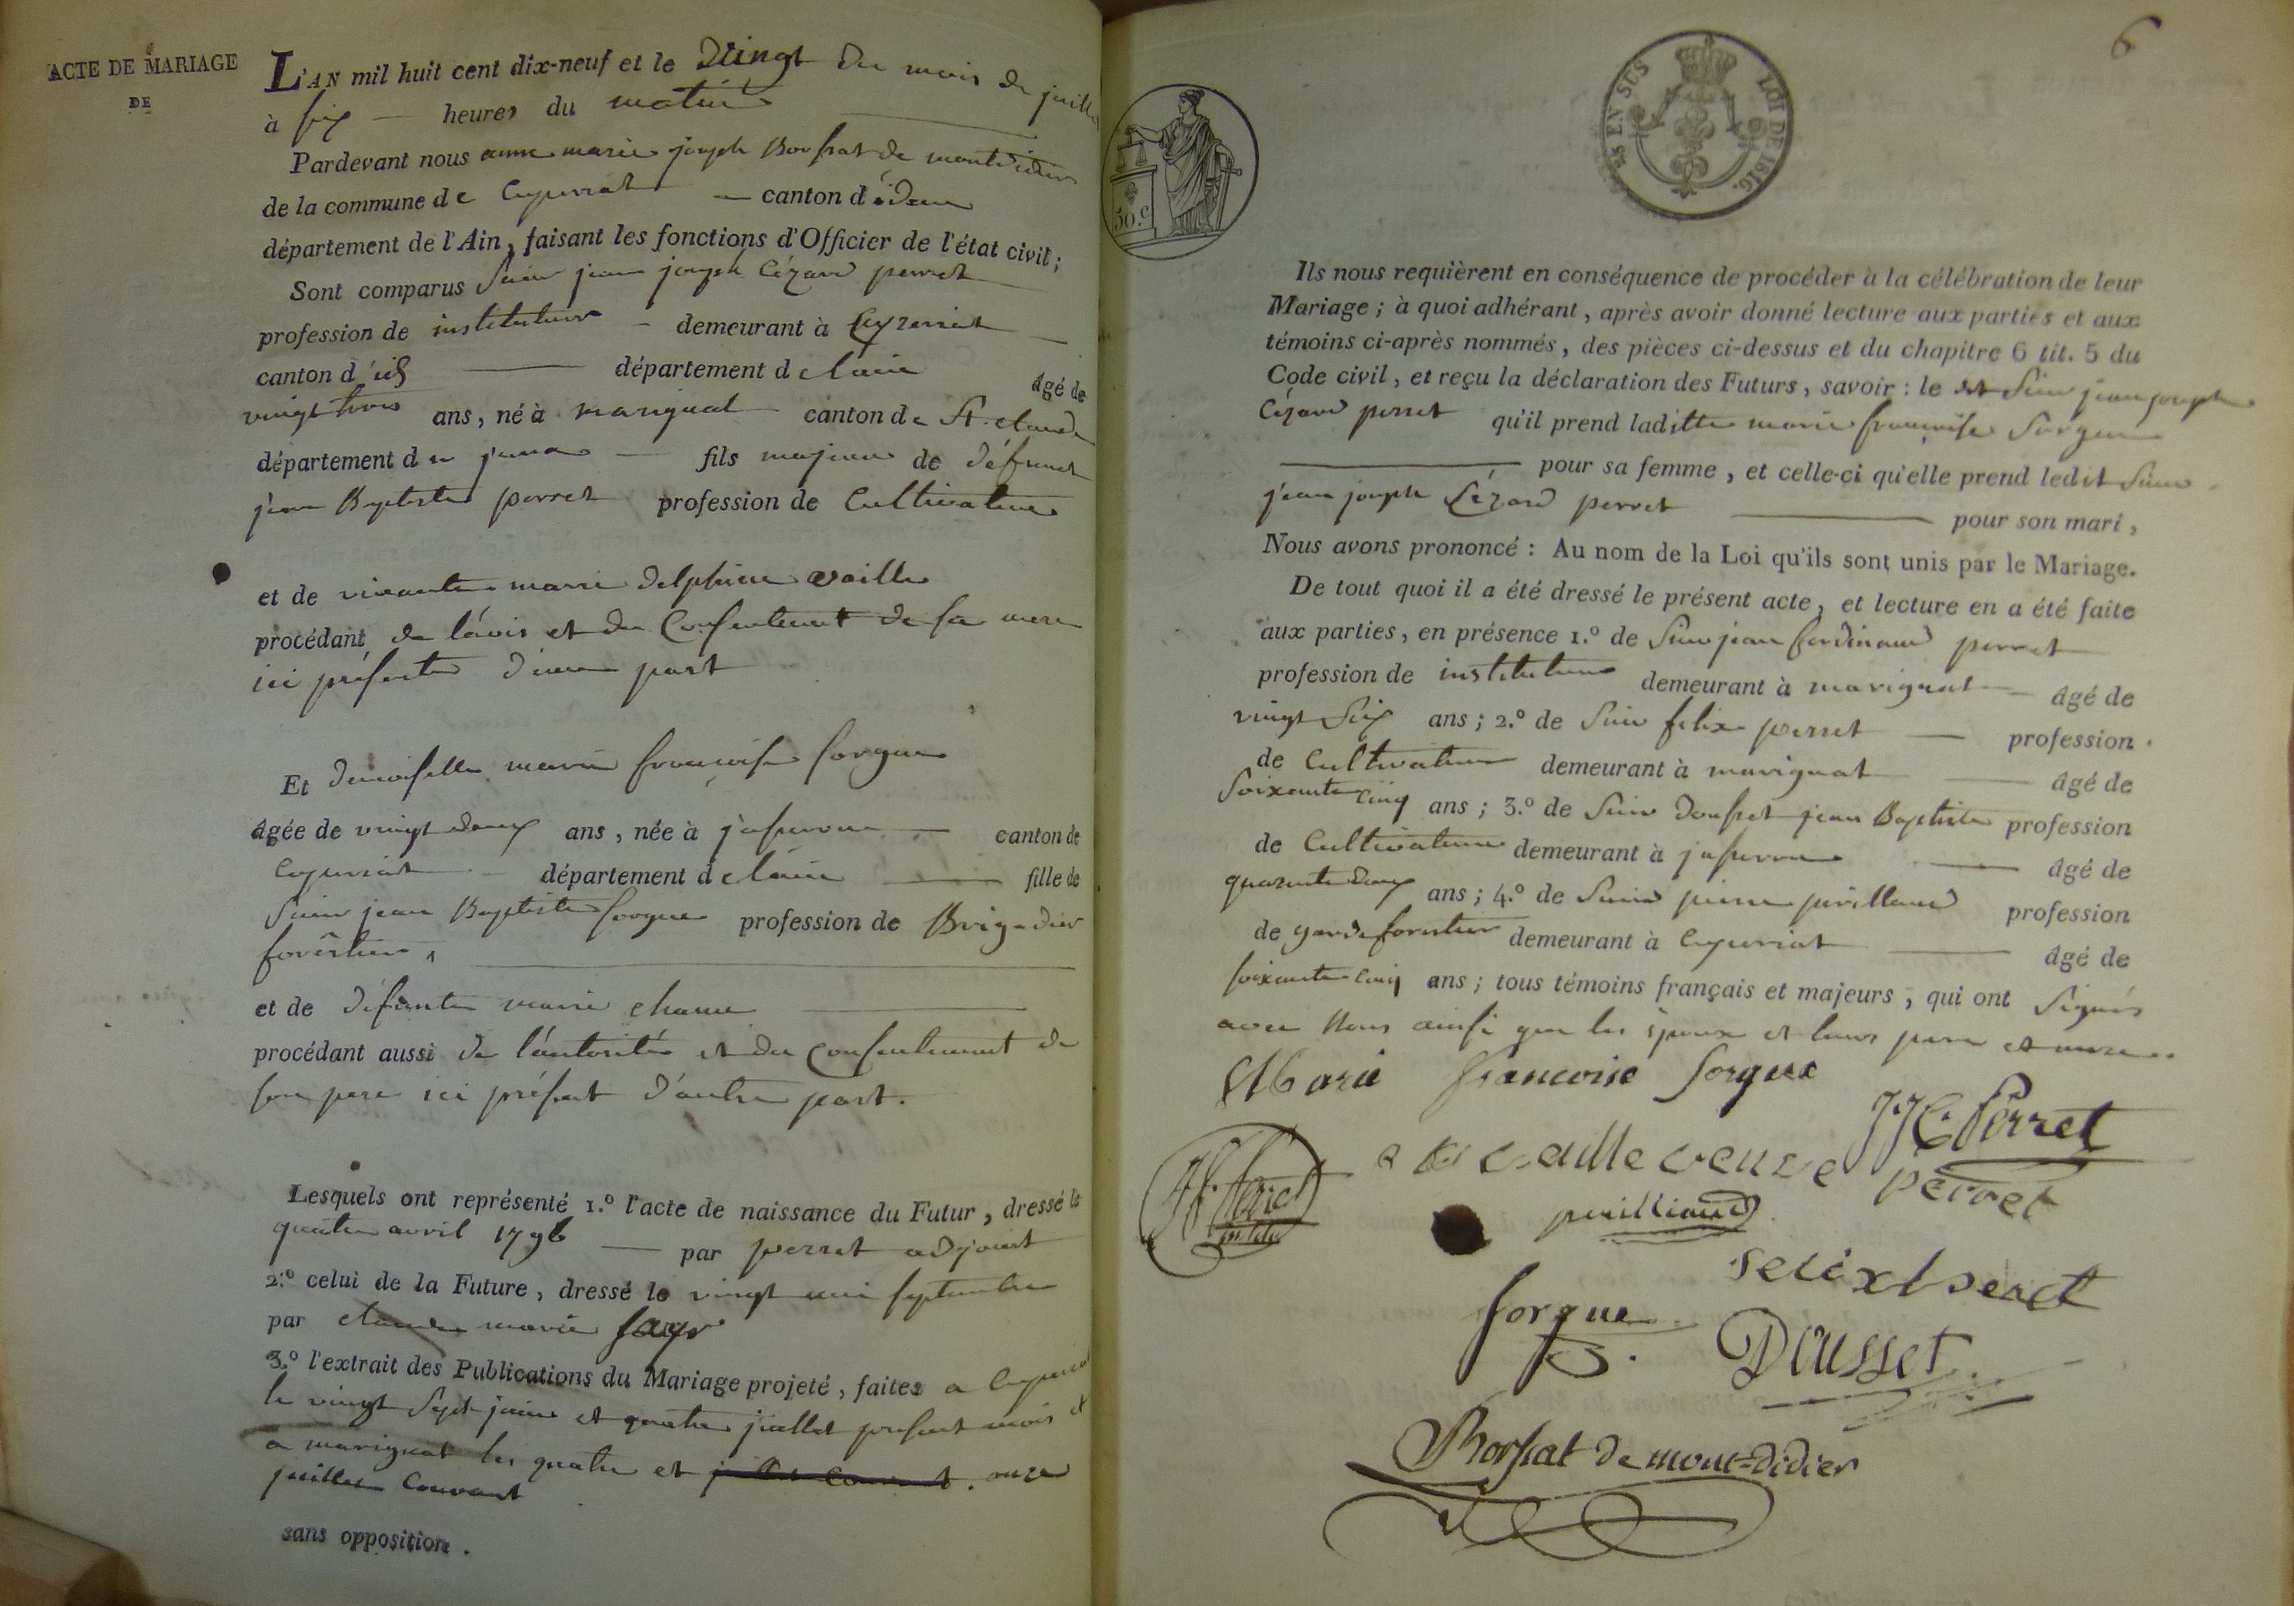 ACTE DE MARIAGE
DE
L'AN mil huit cent dix-neuf et le vingt du mois de juillet
à six heures du matin
Pardevant nous anne marie joseph Borssat de montdidier
de la commune de Ceyzeriat canton d'idem
département de l'Ain, faisant les fonctions d'Officier de l'état civil;
Sont comparus Sieur jean joseph Cézard perret
profession de instituteur demeurant à Ceyzeriat
canton d'id département de l'ain âgé de
vingt trois ans, né à marignat canton de St. claude
département du jura fils majeur de défunt
jean Baptiste perret profession de Cultivateur
et de vivante marie delphine vaille
procédant de l'avis et du Consentement de sa mere
ici présente d'une part
Et demoiselle marie francoise sorgue
âgée de vingt deux ans, née à jasseron canton de
Ceyzeriat département de l'ain fille de
Sieur jean Baptiste sorgue profession de Brigadier
forêstier,
et de défunte marie
procédant aussi de l'autorité et du consentement de
son pere ici présent d'autre part.
Lesquels ont représenté 1.º l'acte de naissance du Futur, dressé le
quatre avril 1796 par perret adjoint
2.º celui de la Future, dressé le vingt un septembre
par claude marie
3.º l'extrait des Publications du Mariage projeté, faites a Ceyzeriat
le vingt sept juin et quatre juillet présent mois et
a marignat les quatre et onze
juillet Courant
sans opposition.
6
EN SUS
LOI DE 1816.
50.c
Ils nous requièrent en conséquence de procéder à la célébration de leur
Mariage; à quoi adhérant, après avoir donné lecture aux parties et aux
témoins ci-après nommés, des pièces ci-dessus et du chapitre 6 tit. 5 du
Code civil, et reçu la déclaration des Futurs, savoir: le dit Sieur jean joseph
Cézard perret qu'il prend laditte marie francoise Sorgue
pour sa femme, et celle-ci qu'elle prend ledit Sieur
jean joseph Cézard perret pour son mari,
Nous avons prononcé: Au nom de la Loi qu'ils sont unis par le Mariage.
De tout quoi il a été dressé le présent acte, et lecture en a été faite
aux parties, en présence 1.º de Sieur jean ferdinand perret
profession de instituteur demeurant à marignat âgé de
vingt six ans; 2.º de Sieur felix perret profession
de Cultivateur demeurant à marignat âgé de
Soixante cinq ans; 3.º de Sieur dousset jean Baptiste profession
de Cultivateur demeurant à jasseron âgé de
quarante deux ans; 4.º de Sieur pierre profession
de garde forestier demeurant à Ceyzeriat âgé de
soixante cinq ans; tous témoins français et majeurs, qui ont Signés
avec Nous ainsi que les époux et leurs pere et mere
Marie francoise Sorgue
JJC Perret
vaille veuve perret
felix peret
sorgue
Dousset
Borssat de mont-didier